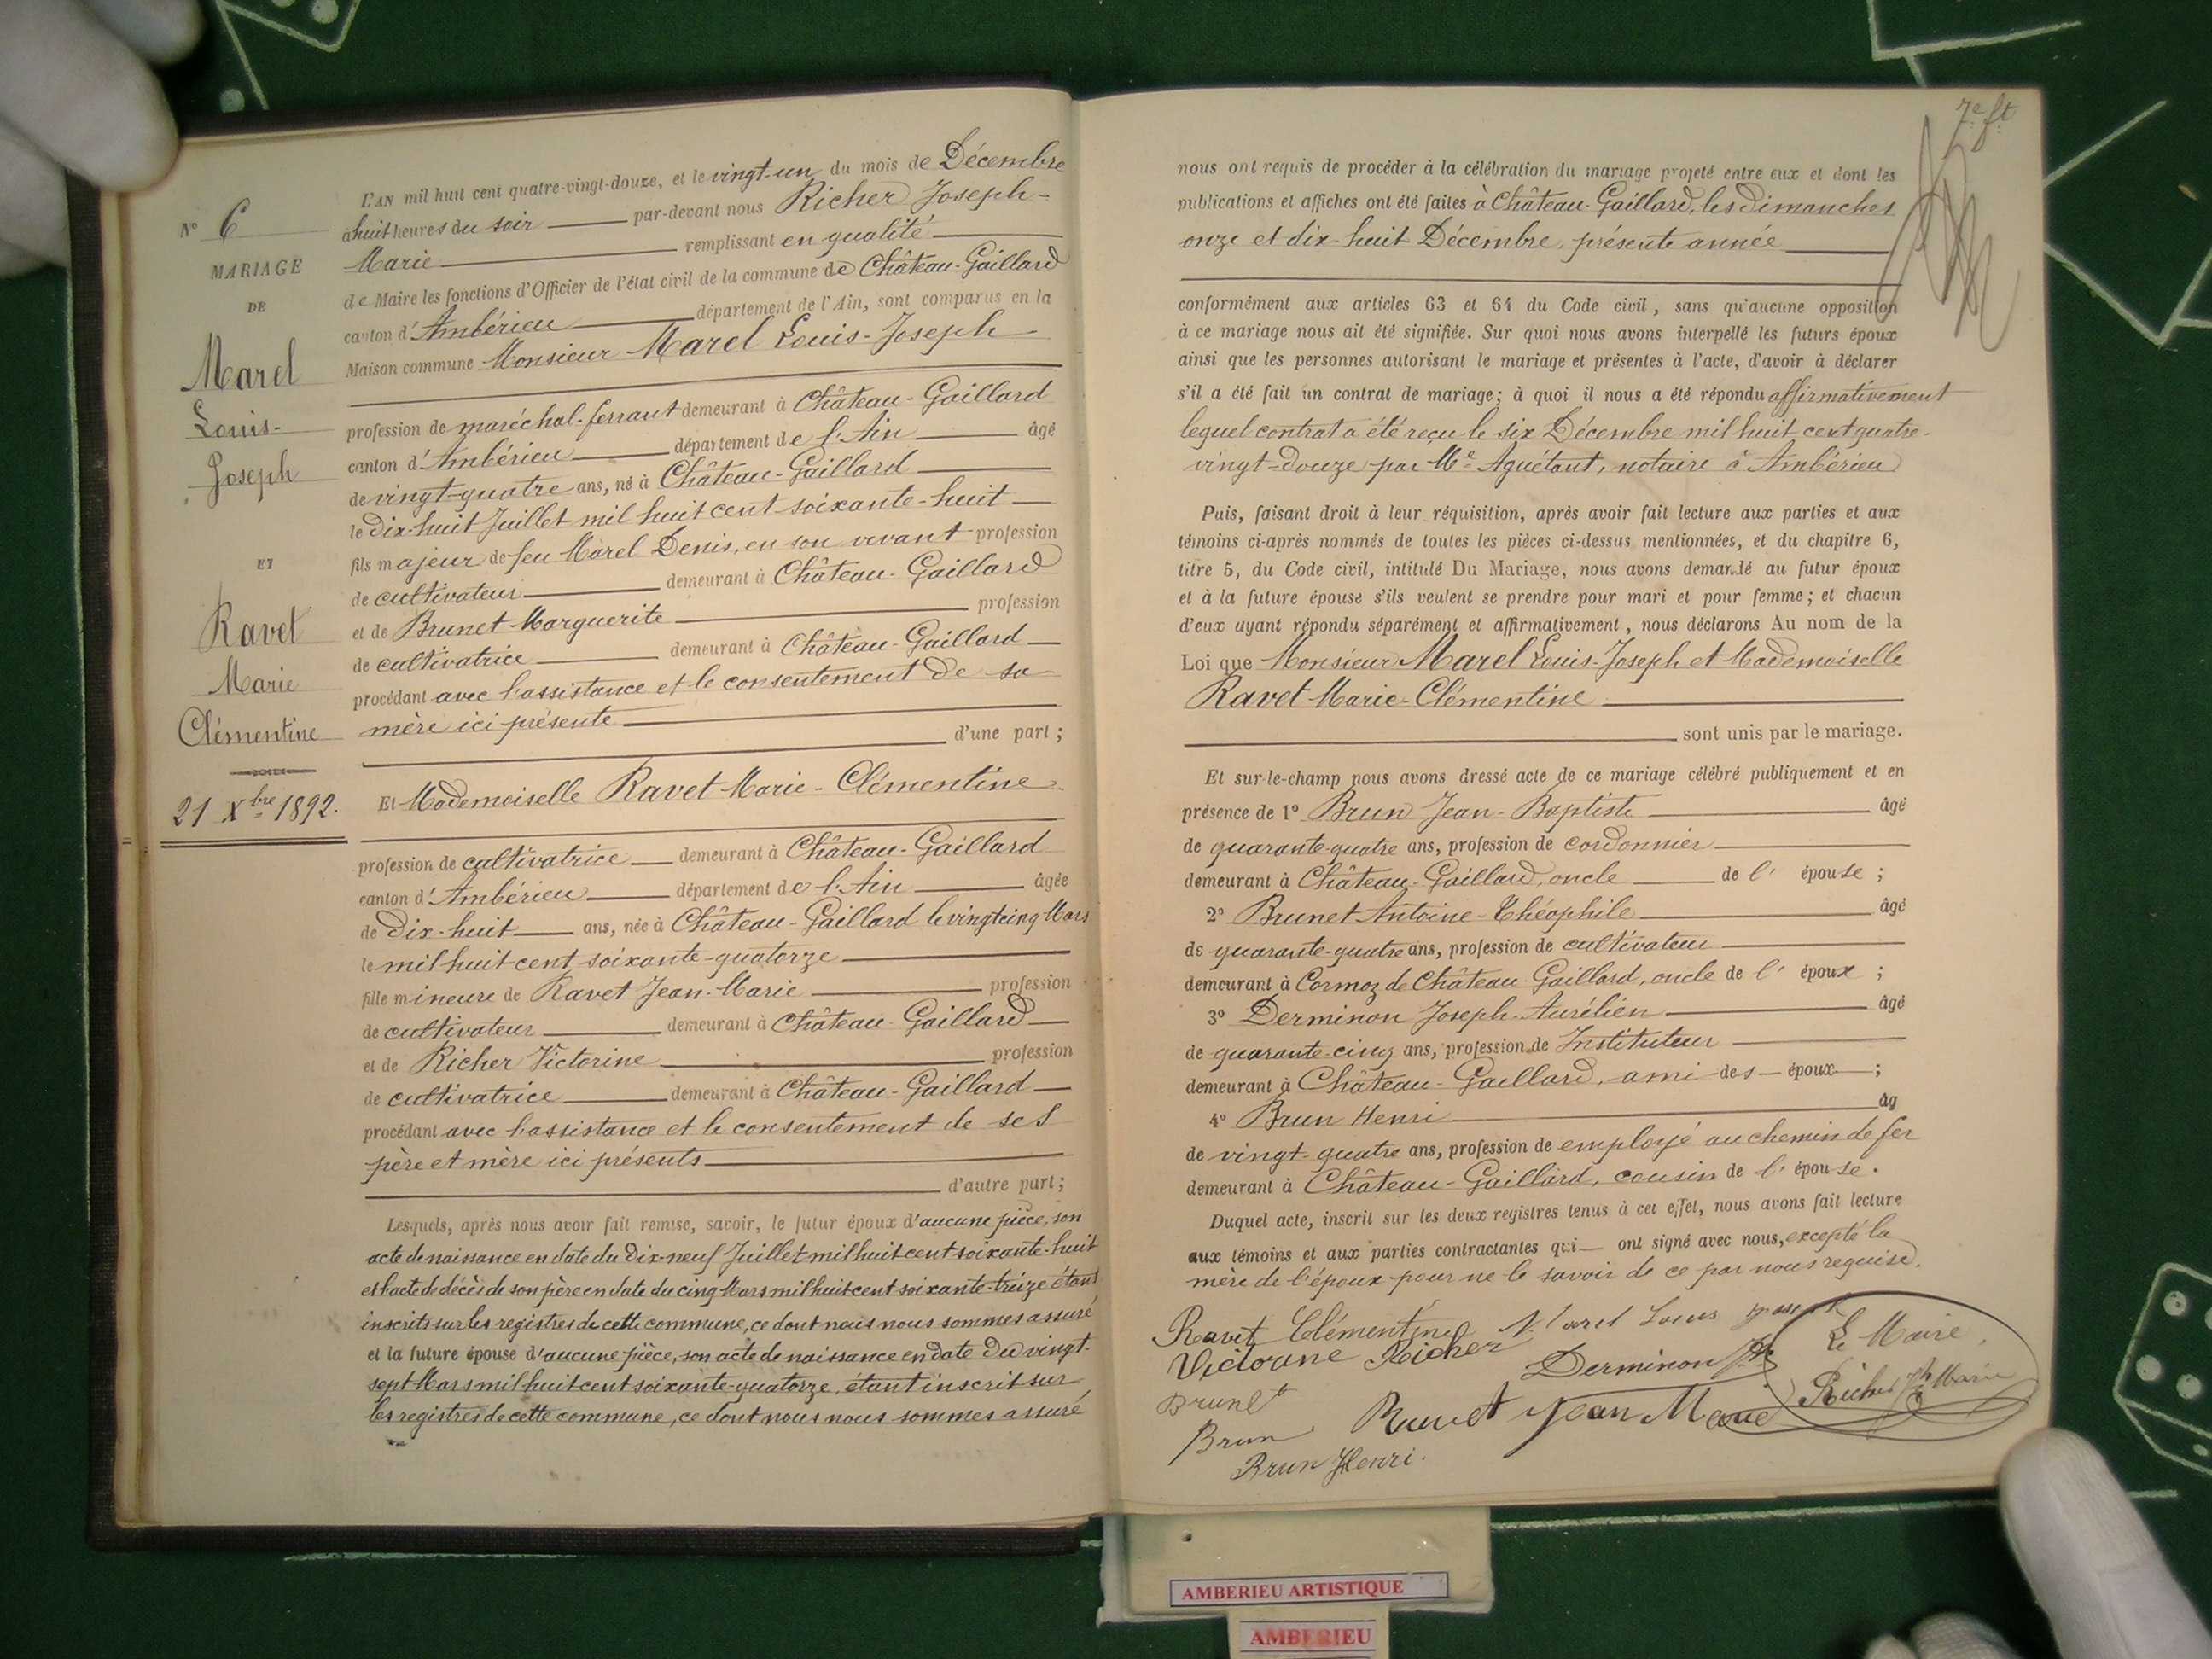 N° 6
MARIAGE
DE
Marel
Louis-
Joseph
ET
Ravet
Marie
Clémentine
21 Xbre 1892.
L'AN mil huit cent quatre-vingt-douze, et le vingt-un du mois de Décembre
à huit heures du soir par-devant nous Richer Joseph-
Marie remplissant en qualité
de Maire les fonctions d'Officier de l'état civil de la commune de Château-Gaillard
canton d'Ambérieu département de l'Ain, sont comparus en la
Maison commune Monsieur Marel Louis-Joseph
profession de maréchal-ferrant demeurant à Château-Gaillard
canton d'Ambérieu département de l'Ain âgé
de vingt-quatre ans, né à Château-Gaillard
le dix-huit Juillet mil huit cent soixante-huit
fils majeur de feu Marel Denis, en son vivant profession
de cultivateur demeurant à Château-Gaillard
et de Brunet Marguerite profession
de cultivatrice demeurant à Château-Gaillard
procédant avec l'assistance et le consentement de sa
mère ici présente
d'une part;
Et Mademoiselle Ravet Marie-Clémentine
profession de cultivatrice demeurant à Château-Gaillard
canton d'Ambérieu département de l'Ain âgée
de dix-huit ans, née à Château-Gaillard le vingt cinq Mars
le mil huit cent soixante-quatorze
fille mineure de Ravet Jean-Marie profession
de cultivateur demeurant à Château-Gaillard
et de Richer Victorine profession
de cultivatrice demeurant à Château-Gaillard
procédant avec l'assistance et le consentement de ses
père et mère ici présents
d'autre part;
Lesquels, après nous avoir fait remise, savoir, le futur époux d'aucune pièce, son
acte de naissance en date du dix-neuf Juillet mil huit cent soixante-huit
et l'acte de décès de son père en date du cinq Mars mil huit cent soixante-treize étant
inscrits sur les registres de cette commune, ce dont nous nous sommes assuré
et la future épouse d'aucune pièce, son acte de naissance en date du vingt-
sept Mars mil huit cent soixante-quatorze, étant inscrit sur
les registres de cette commune, ce dont nous nous sommes assuré
7e ft
nous ont requis de procéder à la célébration du mariage projeté entre eux et dont les
publications et affiches ont été faites à Château-Gaillard, les dimanches
onze et dix-huit Décembre, présente année
conformément aux articles 63 et 64 du Code civil, sans qu'aucune opposition
à ce mariage nous ait été signifiée. Sur quoi nous avons interpellé les futurs époux
ainsi que les personnes autorisant le mariage et présentes à l'acte, d'avoir à déclarer
s'il a été fait un contrat de mariage; à quoi il nous a été répondu affirmativement
lequel contrat a été reçu le six Décembre mil huit cent quatre-
vingt-douze par Me Aguétant, notaire à Ambérieu
Puis, faisant droit à leur réquisition, après avoir fait lecture aux parties et aux
témoins ci-après nommés de toutes les pièces ci-dessus mentionnées, et du chapitre 6,
titre 5, du Code civil, intitulé Du Mariage, nous avons demandé au futur époux
et à la future épouse s'ils veulent se prendre pour mari et pour femme; et chacun
d'eux ayant répondu séparément et affirmativement, nous déclarons Au nom de la
Loi que Monsieur Marel Louis-Joseph et Mademoiselle
Ravet Marie-Clémentine
sont unis par le mariage.
Et sur-le-champ nous avons dressé acte de ce mariage célébré publiquement et en
présence de 1° Brun Jean-Baptiste âgé
de quarante-quatre ans, profession de cordonnier
demeurant à Château-Gaillard, oncle de l'épouse;
2° Brunet Antoine-Théophile âgé
de quarante-quatre ans, profession de cultivateur
demeurant à Cormoz de Château Gaillard, oncle de l'époux;
3° Derminon Joseph-Aurélien âgé
de quarante-cinq ans, profession de Instituteur
demeurant à Château-Gaillard, ami des époux;
4° Brun Henri âg
de vingt-quatre ans, profession de employé au chemin de fer
demeurant à Château-Gaillard, cousin de l'épouse.
Duquel acte, inscrit sur les deux registres tenus à cet effet, nous avons fait lecture
aux témoins et aux parties contractantes qui ont signé avec nous, excepté la
mère de l'époux pour ne le savoir de ce par nous requise.
Ravet Clémentine Marel Louis Joseph
Victorine Richer Derminon Le Maire,
Brunet Ravet Jean Marie Richer Jh Marie
Brun
Brun Henri.
AMBERIEU ARTISTIQUE
AMBERIEU